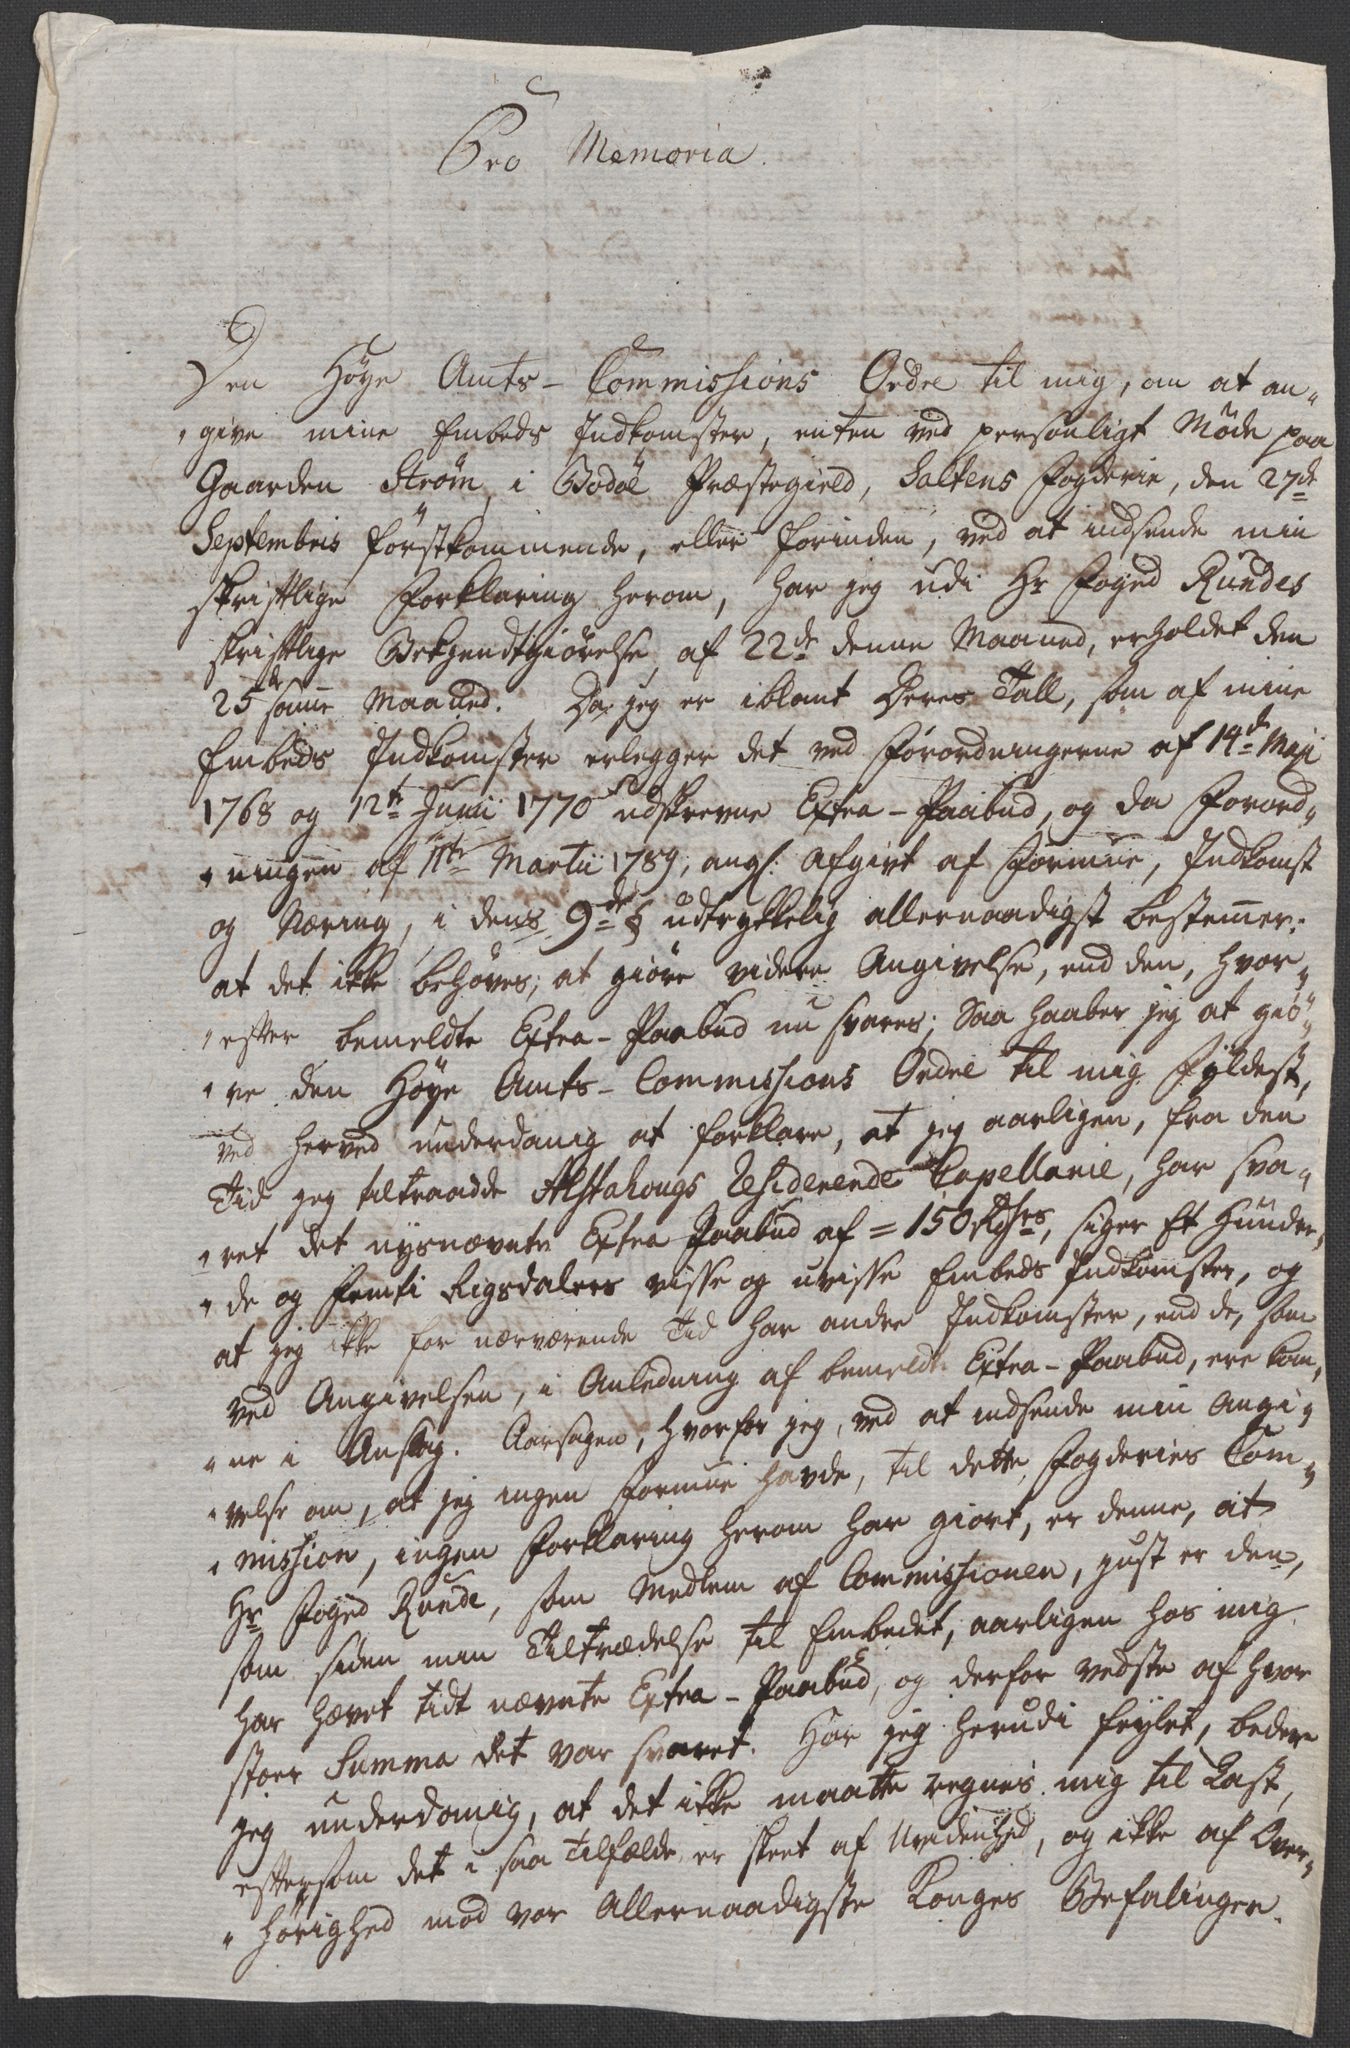 Pro Memoria.
Den Høye Amts-Commissions Ordre til mig, om at an„
„give mine Embeds Indkomster, enten ved personligt Møde paa
Gaarden Strøm, i Bodøe Præstegield, Saltens Fogderie, den 27de
Septembris førstkommende, eller forinden, ved at indsende min
skriftlige Forklaring herom, har jeg udi Hr Foged Rundes
skriftlige Bekjendtgiørelse af 22de denne Maaned, erholdet den
25de samme Maaned. Da jeg er iblant Deres Tall, som af mine
Embeds Indkomster erlegger det ved Forordningerne af 14de Maji
1768 og 12te Junii 1770 udskrevne Extra-Paabud, og da Forord„
„ningen af 11te Martii 1789, angl. Afgivt af Formue, Indkomst
og Næring, i dens 9de § udtrykkelig allernaadigst bestemmer:
at det ikke behøves, at giøre videre Angivelse, end den, hvor„
„efter bemeldte Extra-Paabud nu svares; Saa haaber jeg at giø„
„re den Høye Amts-Commissions Ordre til mig Fyldest,
ved herved underdanig at forklare, at jeg aarligen, fra den
Tid jeg tiltraadde Alstahougs Residerende Capellanie, har sva„
„ret det nysnævnte Extra Paabud af = 150 Rdhrs, siger Et Hundre„
„de og Femti Rigsdalers visse og uvisse Embeds Indkomster, og
at jeg ikke for nærværende Tid har andre Indkomster, end de, som
ved Angivelsen, i Anledning af bemeldte Extra-Paabud, ere kom„
„ne i Anslag. Aarsagen, hvorfor jeg, ved at indsende min Angi„
„velse om, at jeg ingen Formue havde, til dette Fogderies Com„
„mission, ingen Forklaring herom har giort, er denne, at
Hr Foged Runde, som Medlem af Commissionen, just er den,
som siden min Tiltrædelse til Embedet, aarligen hos mig
har hævet tidt nævnte Extra-Paabud, og derfor vedste af hvor
stoer Summa det var svaret. Har jeg herudi feylet, beder
jeg underdanig, at det ikke maatte regnes mig til Last,
eftersom det i saa Tilfælde er skeet af Uvidenhed, og ikke af Over„
„hørighed mod vor Allernaadigste Konges Befalinger.